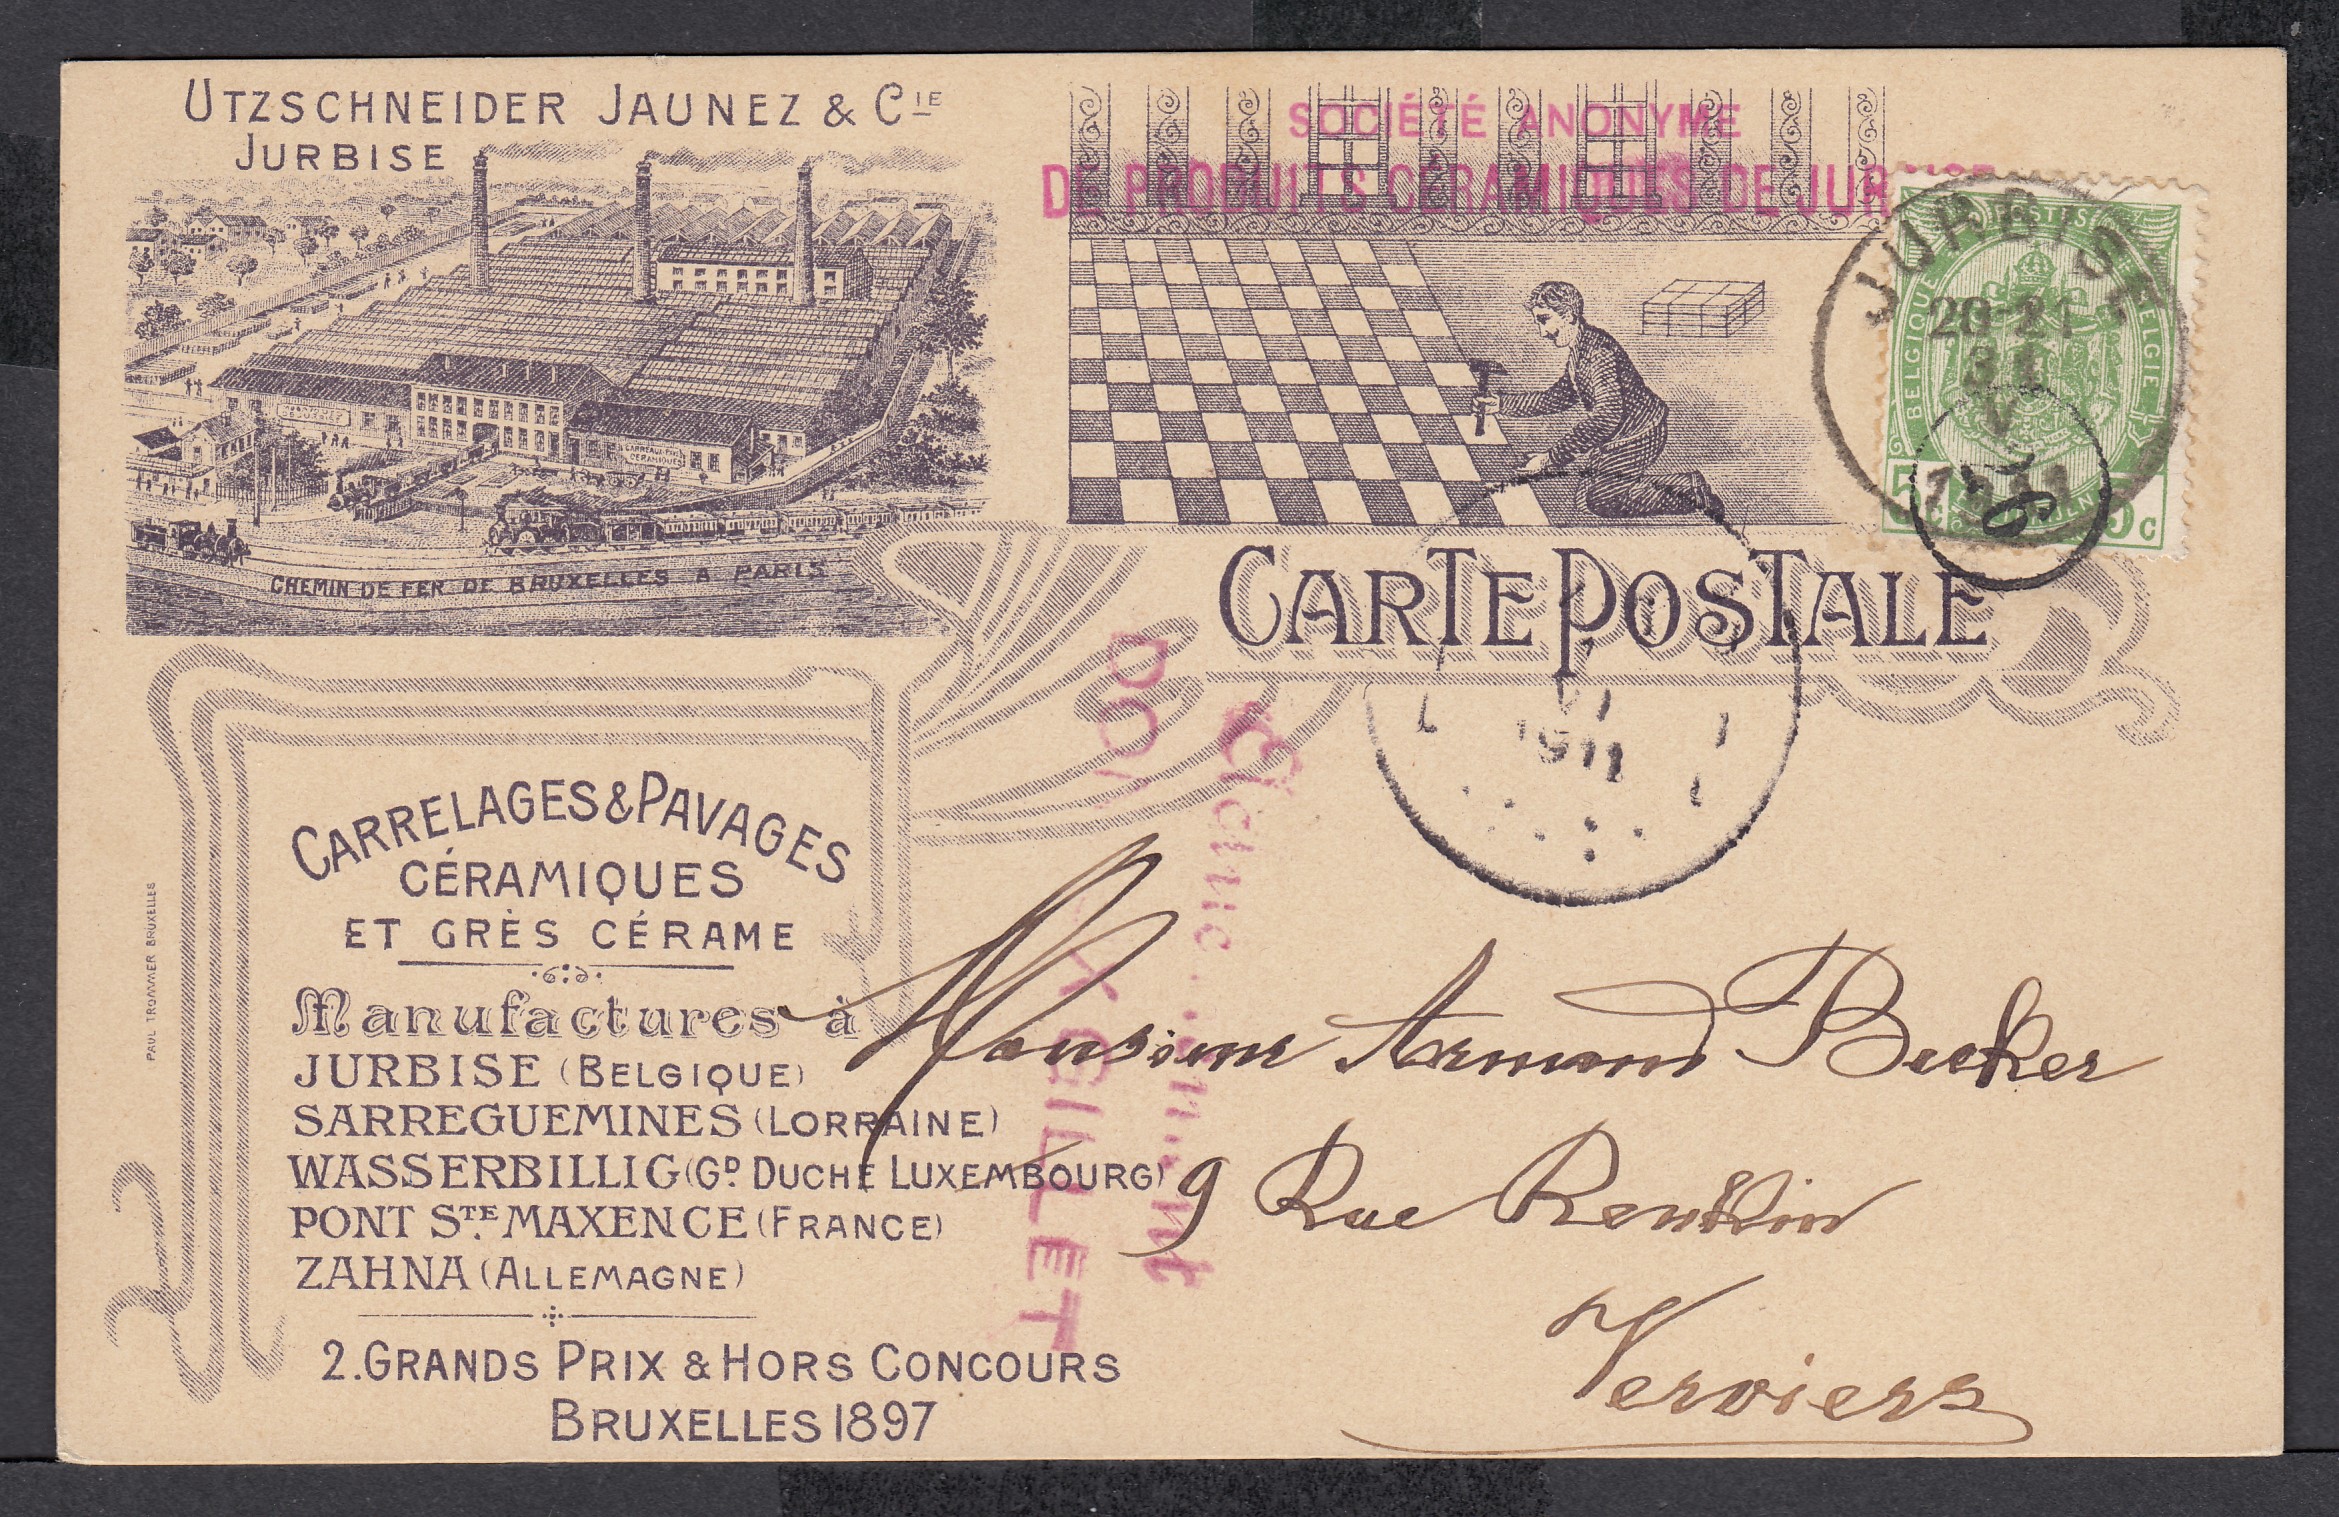 UTZSCHNEIDER JAUNEZ & CIE
JURBISE
CARREAUX CÉRAMIQUES
CHEMIN DE FER DE BRUXELLES A PARIS
SOCIÉTÉ ANONYME
DE PRODUITS CÉRAMIQUES DE JURBISE
JURBISE
20-21
31
V
1911
POSTES
BELGIQUE
BELGIE
5 c
5 c
CARTE POSTALE
VI
1911
CARRELAGES & PAVAGES
CÉRAMIQUES
ET GRÈS CÉRAME
Manufactures à
JURBISE (BELGIQUE)
SARREGUEMINES (LORRAINE)
WASSERBILLIG (GD DUCHÉ LUXEMBOURG)
PONT STE MAXENCE (FRANCE)
ZAHNA (ALLEMAGNE)
2. GRANDS PRIX & HORS CONCOURS
BRUXELLES 1897
PAUL TROMMER BRUXELLES
GILLET
Monsieur Armand Becker
9 Rue Renkin
Verviers